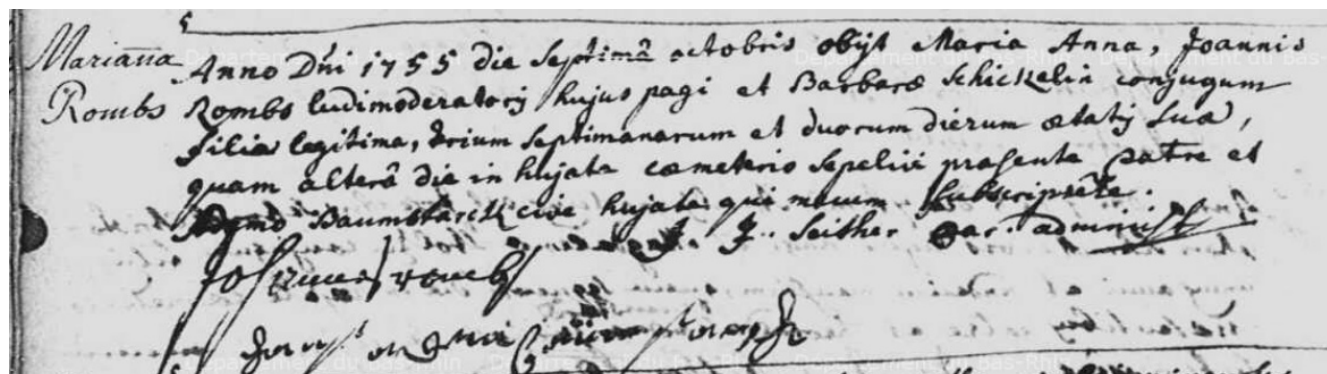 Mariaña
Rombs
Anno Dni 1755 die septimâ octobris obijt Maria Anna, Joannis
Rombs ludimoderatoris hujus pagi et Barbaræ Schickelin conjugum
filia legitima, trium septimanarum et duorum dierum ætatis suæ,
quam alterâ die in hujate cœmeterio sepelivi præsente patre et
Baumstarck cive hujate qui mecum subscripsere.
J. Seither par. administ